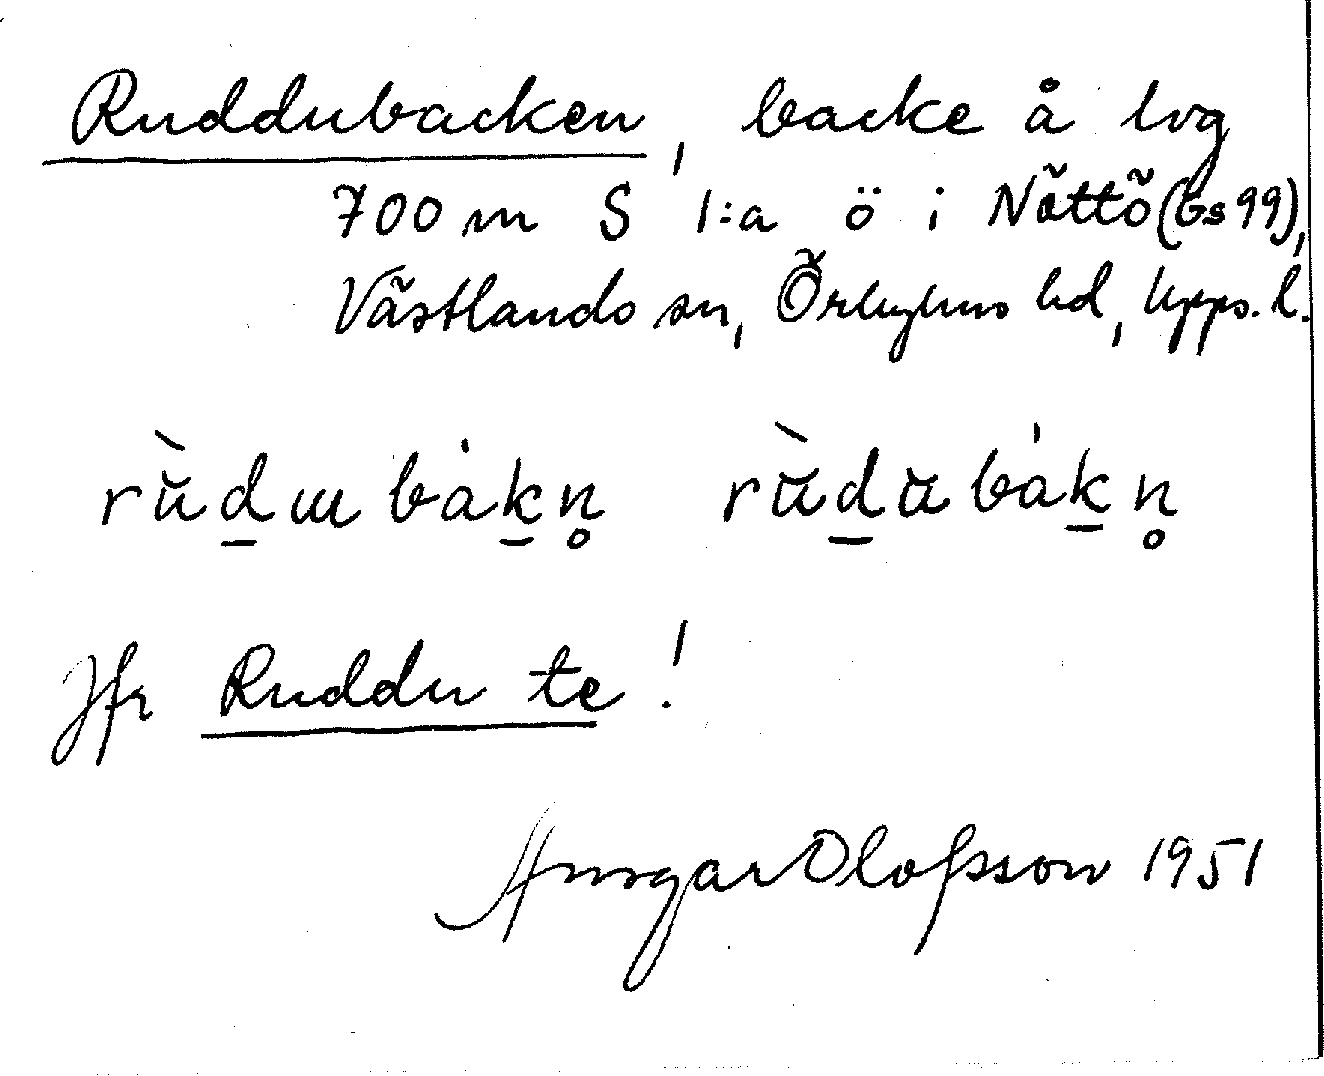 Ruddubacken, backe å lvg
700 m S 1:a ö i Nöttö (bs 99),
Västlands sn, Örbyhus hd, Upps. l.
rὺd̲ɯ bàk̲n̥ rὺd̲ŭ bàk̲n̥
Jfr Ruddu te!
Ansgar Olofsson 1951